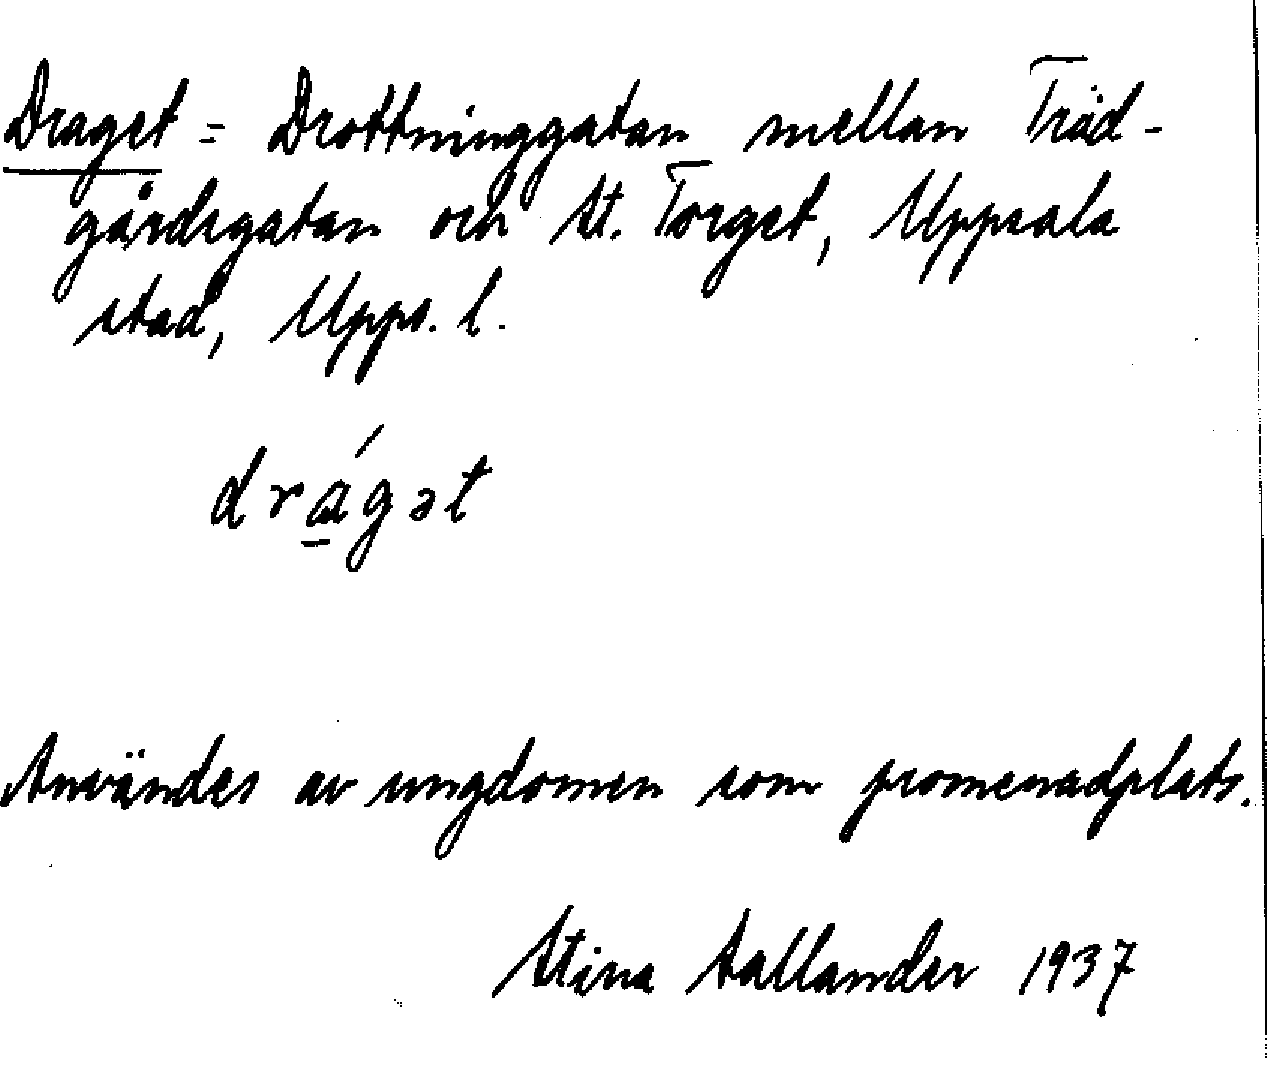 Draget = Drottninggatan mellan Träd-
gårdsgatan och St. Torget, Uppsala
stad, Upps. l.
drá̱gət
Användes av ungdomen som promenadplats.
Stina Sallander 1937